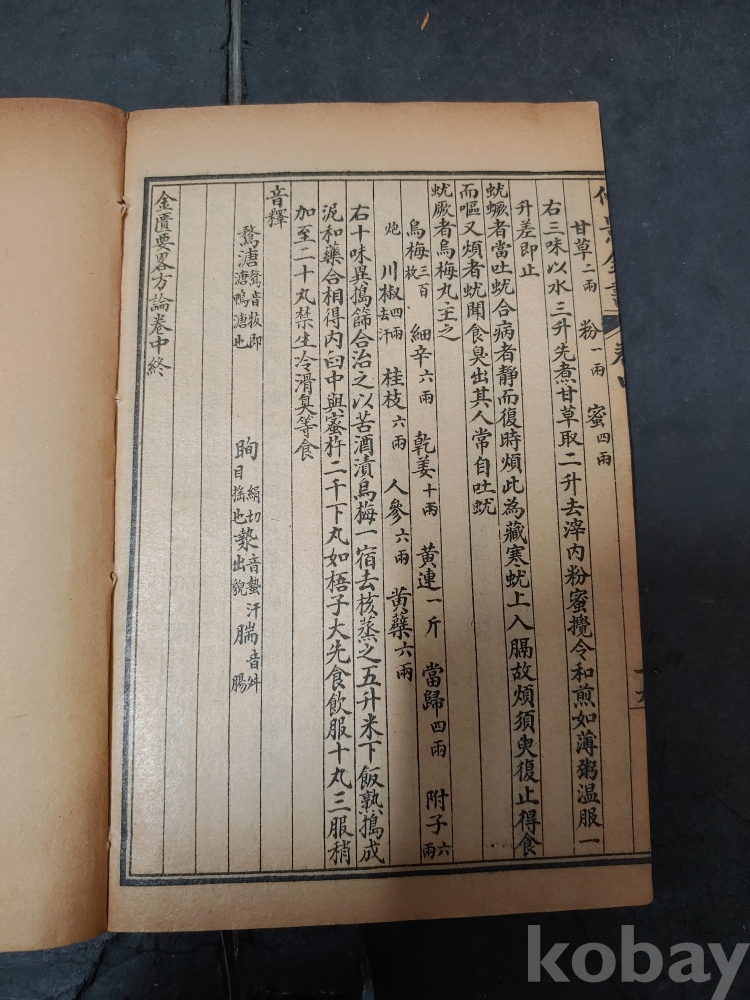 仲景全書 卷四
甘草二兩 粉一兩 蜜四兩
右三味以水三升先煮甘草取二升去滓內粉蜜攪令和煎如薄粥溫服一
升差即止
蚘蟨者當吐蚘合病者靜而復時煩此為藏寒蚘上入膈故煩須臾復止得食
而嘔又煩者蚘聞食臭出其人常自吐蚘
蚘厥者烏梅丸主之
烏梅三百故 細辛六兩 乾姜十兩 黃連一斤 當歸四兩 附子六兩
炮 川椒四兩去汗 桂枝六兩 人參六兩 黃蘗六兩
右十味異搗篩合治之以苦酒漬烏梅一宿去核蒸之五升米下飯熟搗成
泥和藥合相得內臼中與蜜杵二千下丸如梧子大先食飲服十丸三服稍
加至二十丸禁生冷滑臭等食
音釋
鶩溏鶩音牧即溏鴨溏也 眴絹切目搖也 漐音蟄汗出貌 腨音舛腸
金匱要畧方論卷中終
kobay